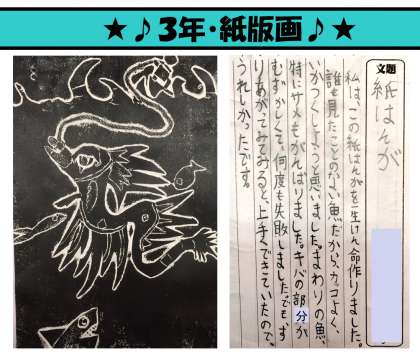 ★♪3年・紙版画♪★
文題
紙はんが
私は、この紙はんがを一生けん命作りました。
誰も見たことのない魚だから、カッコよく、
いかつくしようと思いました。まわりの魚、
特にサメもがんばりました。キバの部分が
むずかしくて、何度も失敗しました。でもす
りあがってみてみると、上手くできていたので、
うれしかったです。